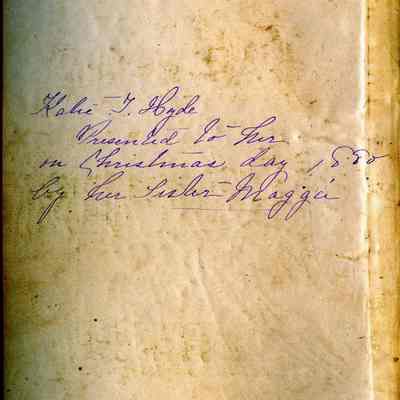 Katie T. Hyde
Presented to her
on Christmas day 1880
by her sister Maggie